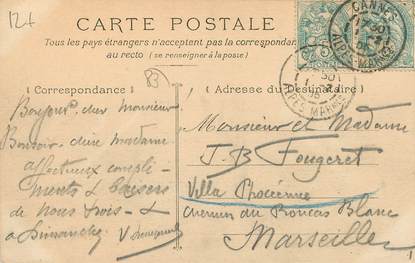 12+
CARTE POSTALE
Tous les pays étrangers n'acceptent pas la correspondance
au recto (se renseigner à la poste)
CANNES
ALPES MARMES
ALPES MARMES
83
Correspondance
Bonjour cher Monsieur
Bonsoir chère madame
affectueux compli-
ments & baisers
de nous trois - &
a Dimanche
Adresse du Destinataire
Monsieur et Madame
J-B Fougeret
Villa Phocéenne
chemin du Roucas Blanc
Marseille